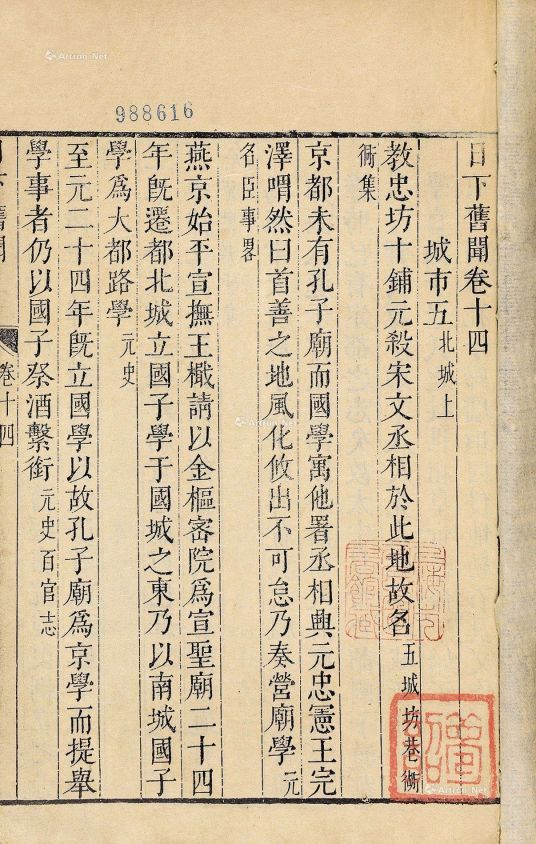 日下舊聞卷十四
城市五 北城上
教忠坊十鋪元殺宋文丞相於此地故名 五城坊巷衚
衕集
京都未有孔子廟而國學寓他署丞相興元忠憲王完
澤喟然曰首善之地風化攸出不可怠乃奏營廟學 元
名臣事畧
燕京始平宣撫王檝請以金樞密院爲宣聖廟二十四
年旣遷都北城立國子學于國城之東乃以南城國子
學爲大都路學 元史
至元二十四年旣立國學以故孔子廟爲京學而提舉
學事者仍以國子祭酒繫銜 元史百官志
卷十四
988616
Artron.Net